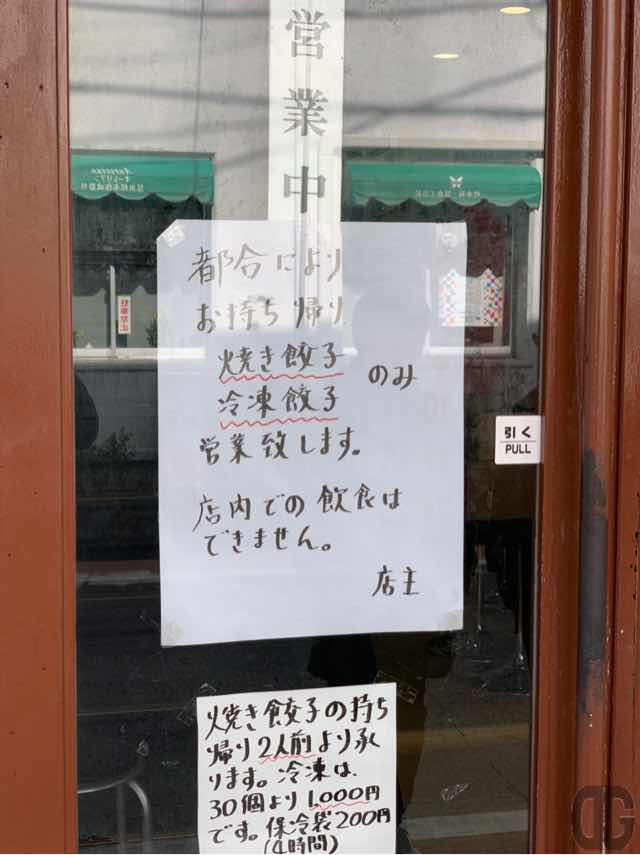 営業中
都合により
お持ち帰り
焼き餃子 のみ
冷凍餃子
営業致します。
店内での飲食は
できません。
店主
引く
PULL
焼き餃子の持ち
帰り2人前より承
ります。冷凍は、
30個より1,000円
です。保冷袋200円
(4時間)